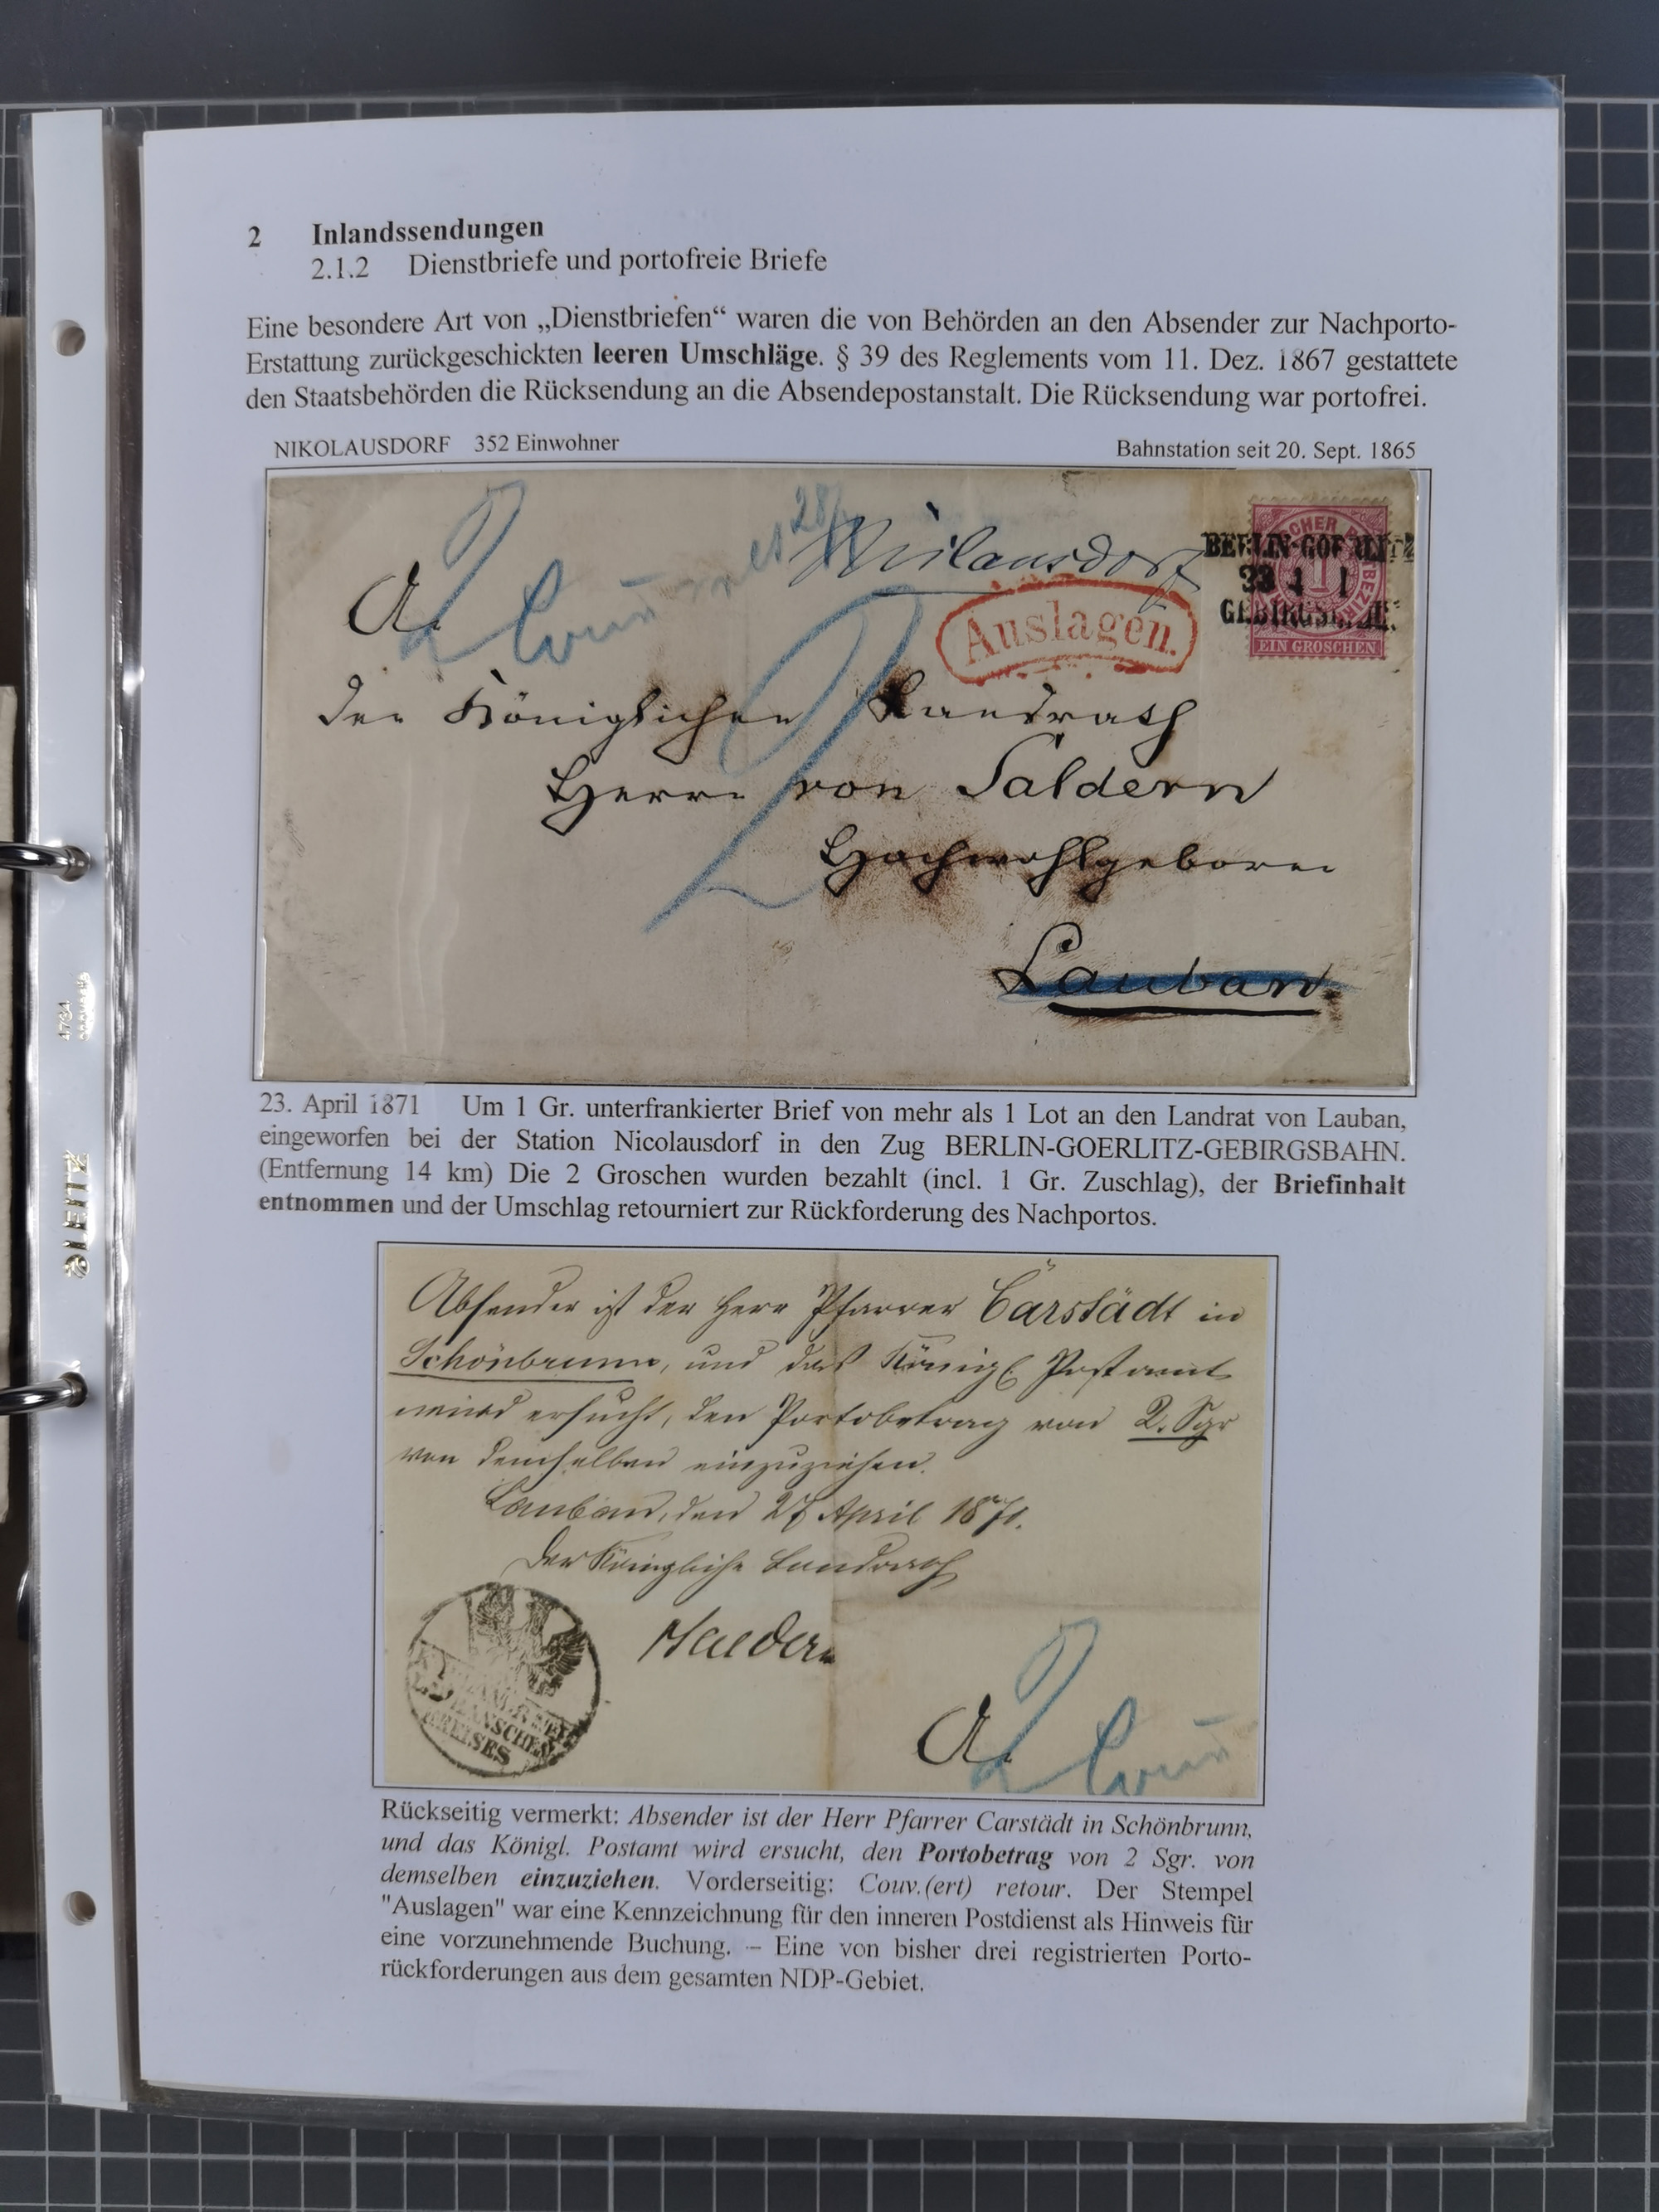 2 Inlandssendungen
2.1.2 Dienstbriefe und portofreie Briefe
Eine besondere Art von „Dienstbriefen“ waren die von Behörden an den Absender zur Nachporto-
Erstattung zurückgeschickten leeren Umschläge. § 39 des Reglements vom 11. Dez. 1867 gestattete
den Staatsbehörden die Rücksendung an die Absendepostanstalt. Die Rücksendung war portofrei.
NIKOLAUSDORF 352 Einwohner
Bahnstation seit 20. Sept. 1865
BERLIN-GOERLITZ
EIN GROSCHEN
Auslagen.
den Königlichen Landrath
Herrn von Saldern
Hochwohlgeboren
Lauban.
23. April 1871 Um 1 Gr. unterfrankierter Brief von mehr als 1 Lot an den Landrat von Lauban,
eingeworfen bei der Station Nicolausdorf in den Zug BERLIN-GOERLITZ-GEBIRGSBAHN.
(Entfernung 14 km) Die 2 Groschen wurden bezahlt (incl. 1 Gr. Zuschlag), der Briefinhalt
entnommen und der Umschlag retourniert zur Rückforderung des Nachportos.
Absender ist der Herr Pfarrer Carstädt in
Schönbrunn, und das Königl Postamt
wird ersucht, den Portobetrag von 2. Sgr
von demselben einzuziehen.
Lauban, den 27 April 1871.
Der Königliche Landrath
LAUBANSCHEN
KREISES
LEITZ
Rückseitig vermerkt: Absender ist der Herr Pfarrer Carstädt in Schönbrunn,
und das Königl. Postamt wird ersucht, den Portobetrag von 2 Sgr. von
demselben einzuziehen. Vorderseitig: Couv.(ert) retour. Der Stempel
"Auslagen" war eine Kennzeichnung für den inneren Postdienst als Hinweis für
eine vorzunehmende Buchung. – Eine von bisher drei registrierten Porto-
rückforderungen aus dem gesamten NDP-Gebiet.